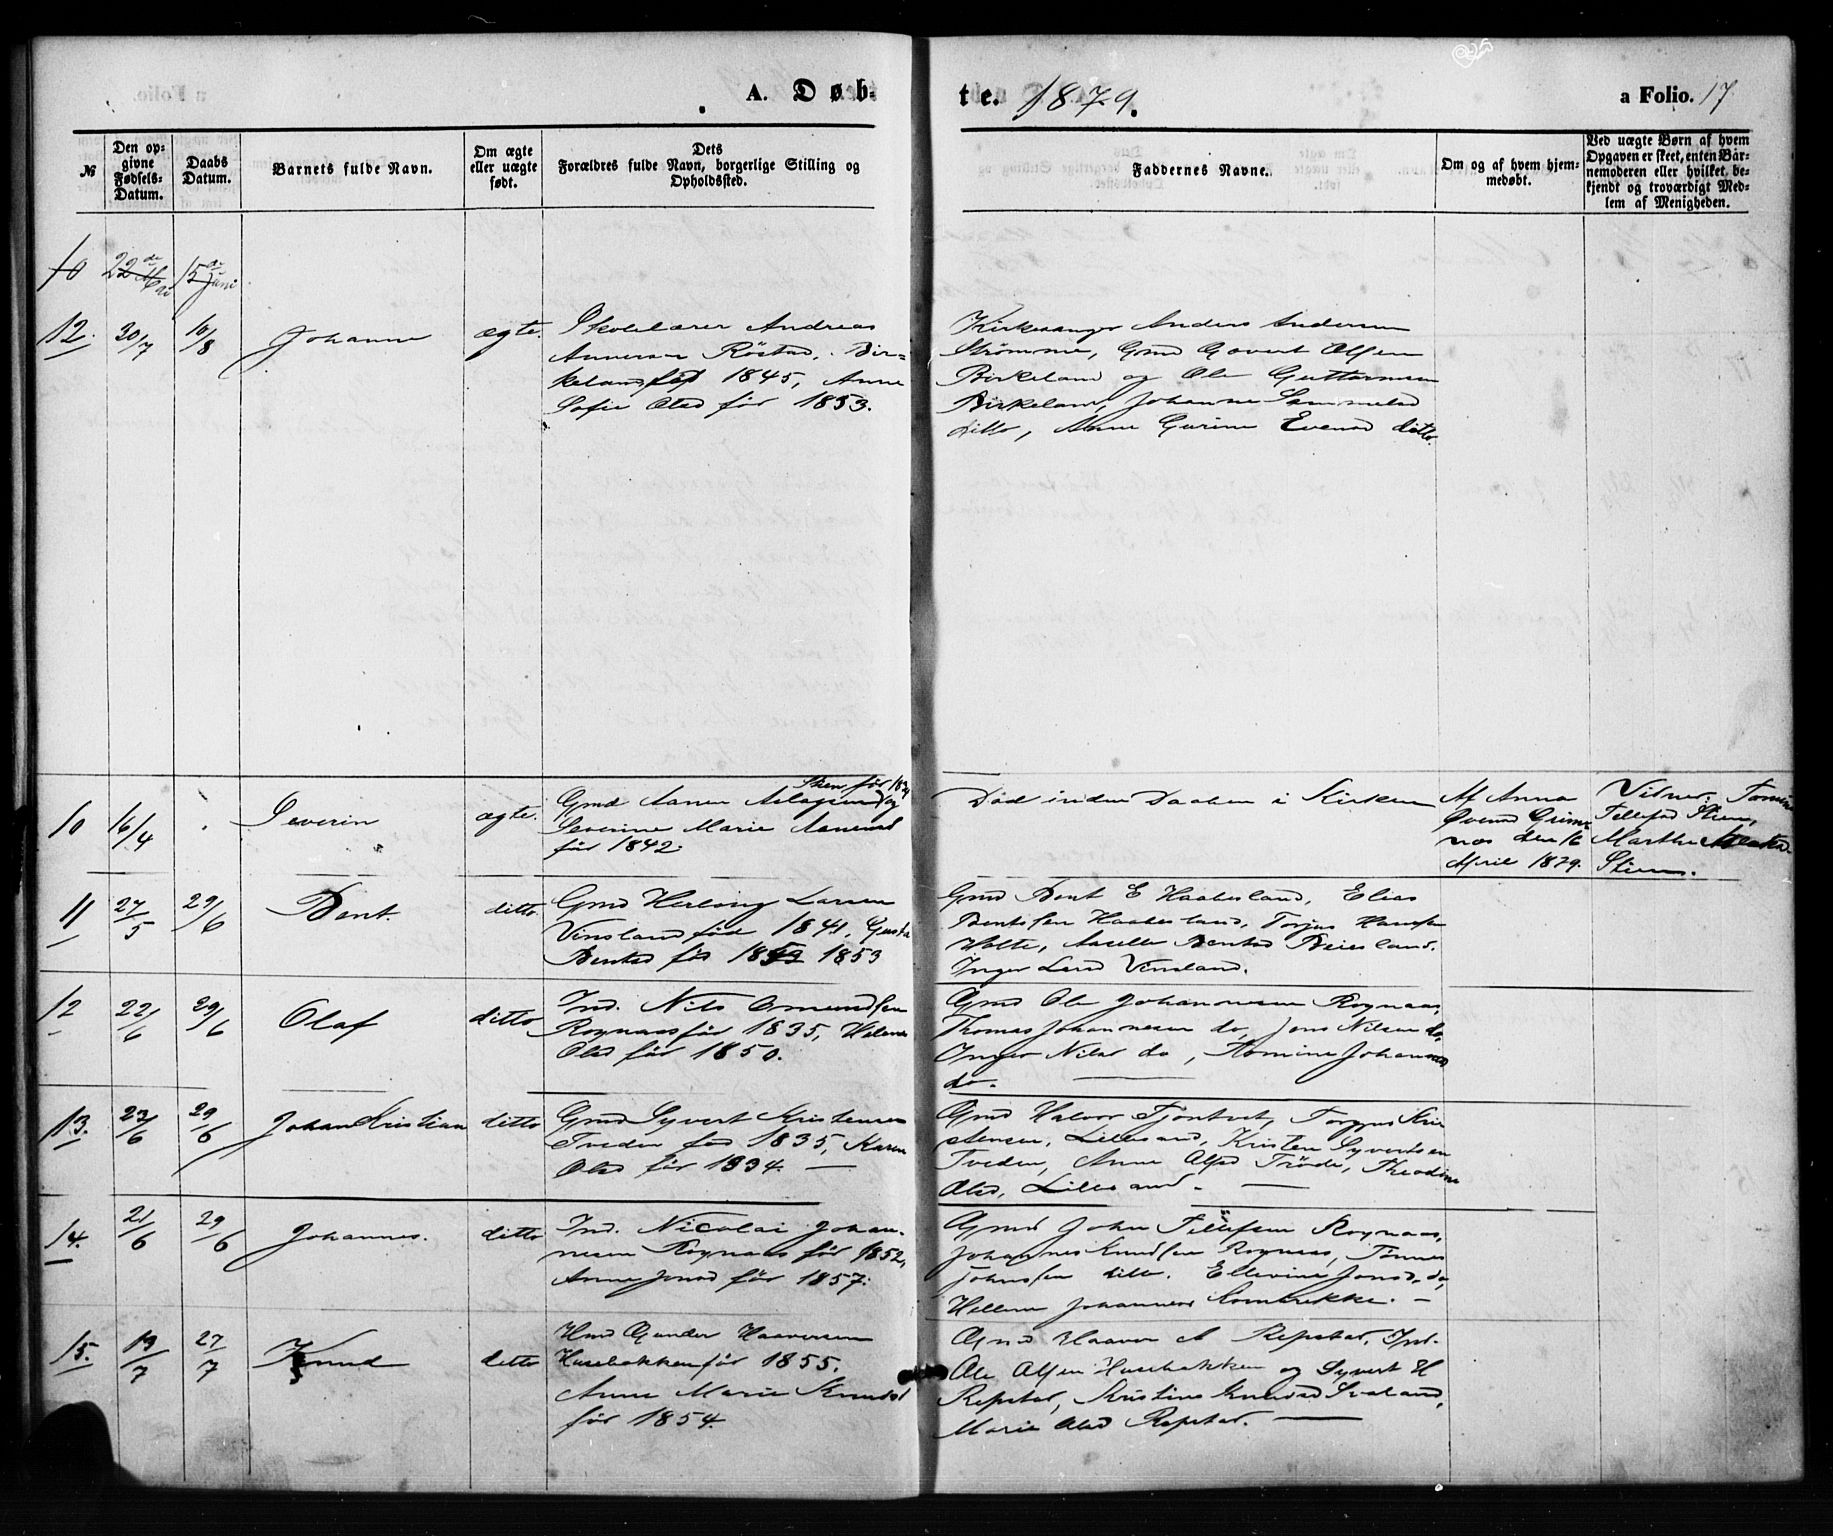 A. Døb- te. 1879. a Folio. 17
№
Den op-
givne
Fødsels-
Datum.
Daabs
Datum.
Barnets fulde Navn.
Om ægte
eller uægte
født.
Dets
Forældres fulde Navn, borgerlige Stilling og
Opholdssted.
Faddernes Navne.
Om og af hvem hjem-
medøbt.
Ved uægte Børn af hvem
Opgaven er skeet, enten Bar-
nemoderen eller hvilket be-
kjendt og troværdigt Med-
lem af Menigheden.
10 22de Mai 15de Juni
12. 30/7 10/8 Johanne ægte.
Skolelærer Andreas
Røstad, Bir-
keland fød 1845, Anne
Sofie Olsd før 1853.
Kirkesanger Anders Andersen
Strømme, Gmd Govert Olsen
Birkeland og Ole Guttormsen
Birkeland, Johanne Sammelsd
ditto, Anne Gurine Evensd ditto.
10 16/4 Severin ægte.
Gmd Aanen Aslagsen og
Severine Marie Aanensd
før 1842.
Død inden Daaben i Kirken
Af Anna
Øvensd Grims-
næs den 16
April 1879.
Vitner: Tomine
Tellefsd Stien,
Marthe
Stien.
11 27/5 29/6 Bent. ditto
Gmd Herlong Larsen
Vinsland fød 1841, Gusta
Bentsd før 1853
Gmd Bent E Haabesland, Elias
Bentssen Haabesland, Torjus Hansen
Holte, Aselle Bentsd Beiesland.
Inger Larsd Vinsland.
12 22/6 29/6 Olaf ditto
Ind. Nils Omundsen
Rognaas før 1835, Helene
Olsd før 1850.
Gmd Ole Johannesen Rognaas,
Thomas Johannesen do, Jens Nilsen do,
Inger Nilsd do, Tomine Johannesd
do.
13. 23/6 29/6 Johan Kristian ditto
Gmd Syvert Kristensen
Tveden fød 1835, Karen
Olsd før 1834.
Gmd Halvor Tjøntvet, Torgus Kri-
stensen, Lillesand, Kristen Syvertsen
Tveden, Anne Olsd Trøde, Theodine
Olsd, Lillesand.
14. 21/6 29/6 Johannes. ditto
Ind. Nicolai Johan-
nesen Rognaas før 1852,
Anne Jonsd før 1857.
Gmd John Tellefsen Rognaas,
Johannes Knudsen Rognaas, Tønnes
Johnsen ditto. Ellevine Jonsd, do,
Hellene Johannesd Kornbrekke.
15. 19/7 27/7 Knud ditto
Hmd Gunder Haaversen
Husebakken før 1855.
Anne Marie Knudsd
før 1854.
Gmd Haaver A Repstad, Ind.
Ole Olsen Husebakken og Syvert H
Repstad, Kristine Knudsd Svaland,
Marie Olsd Repstad.